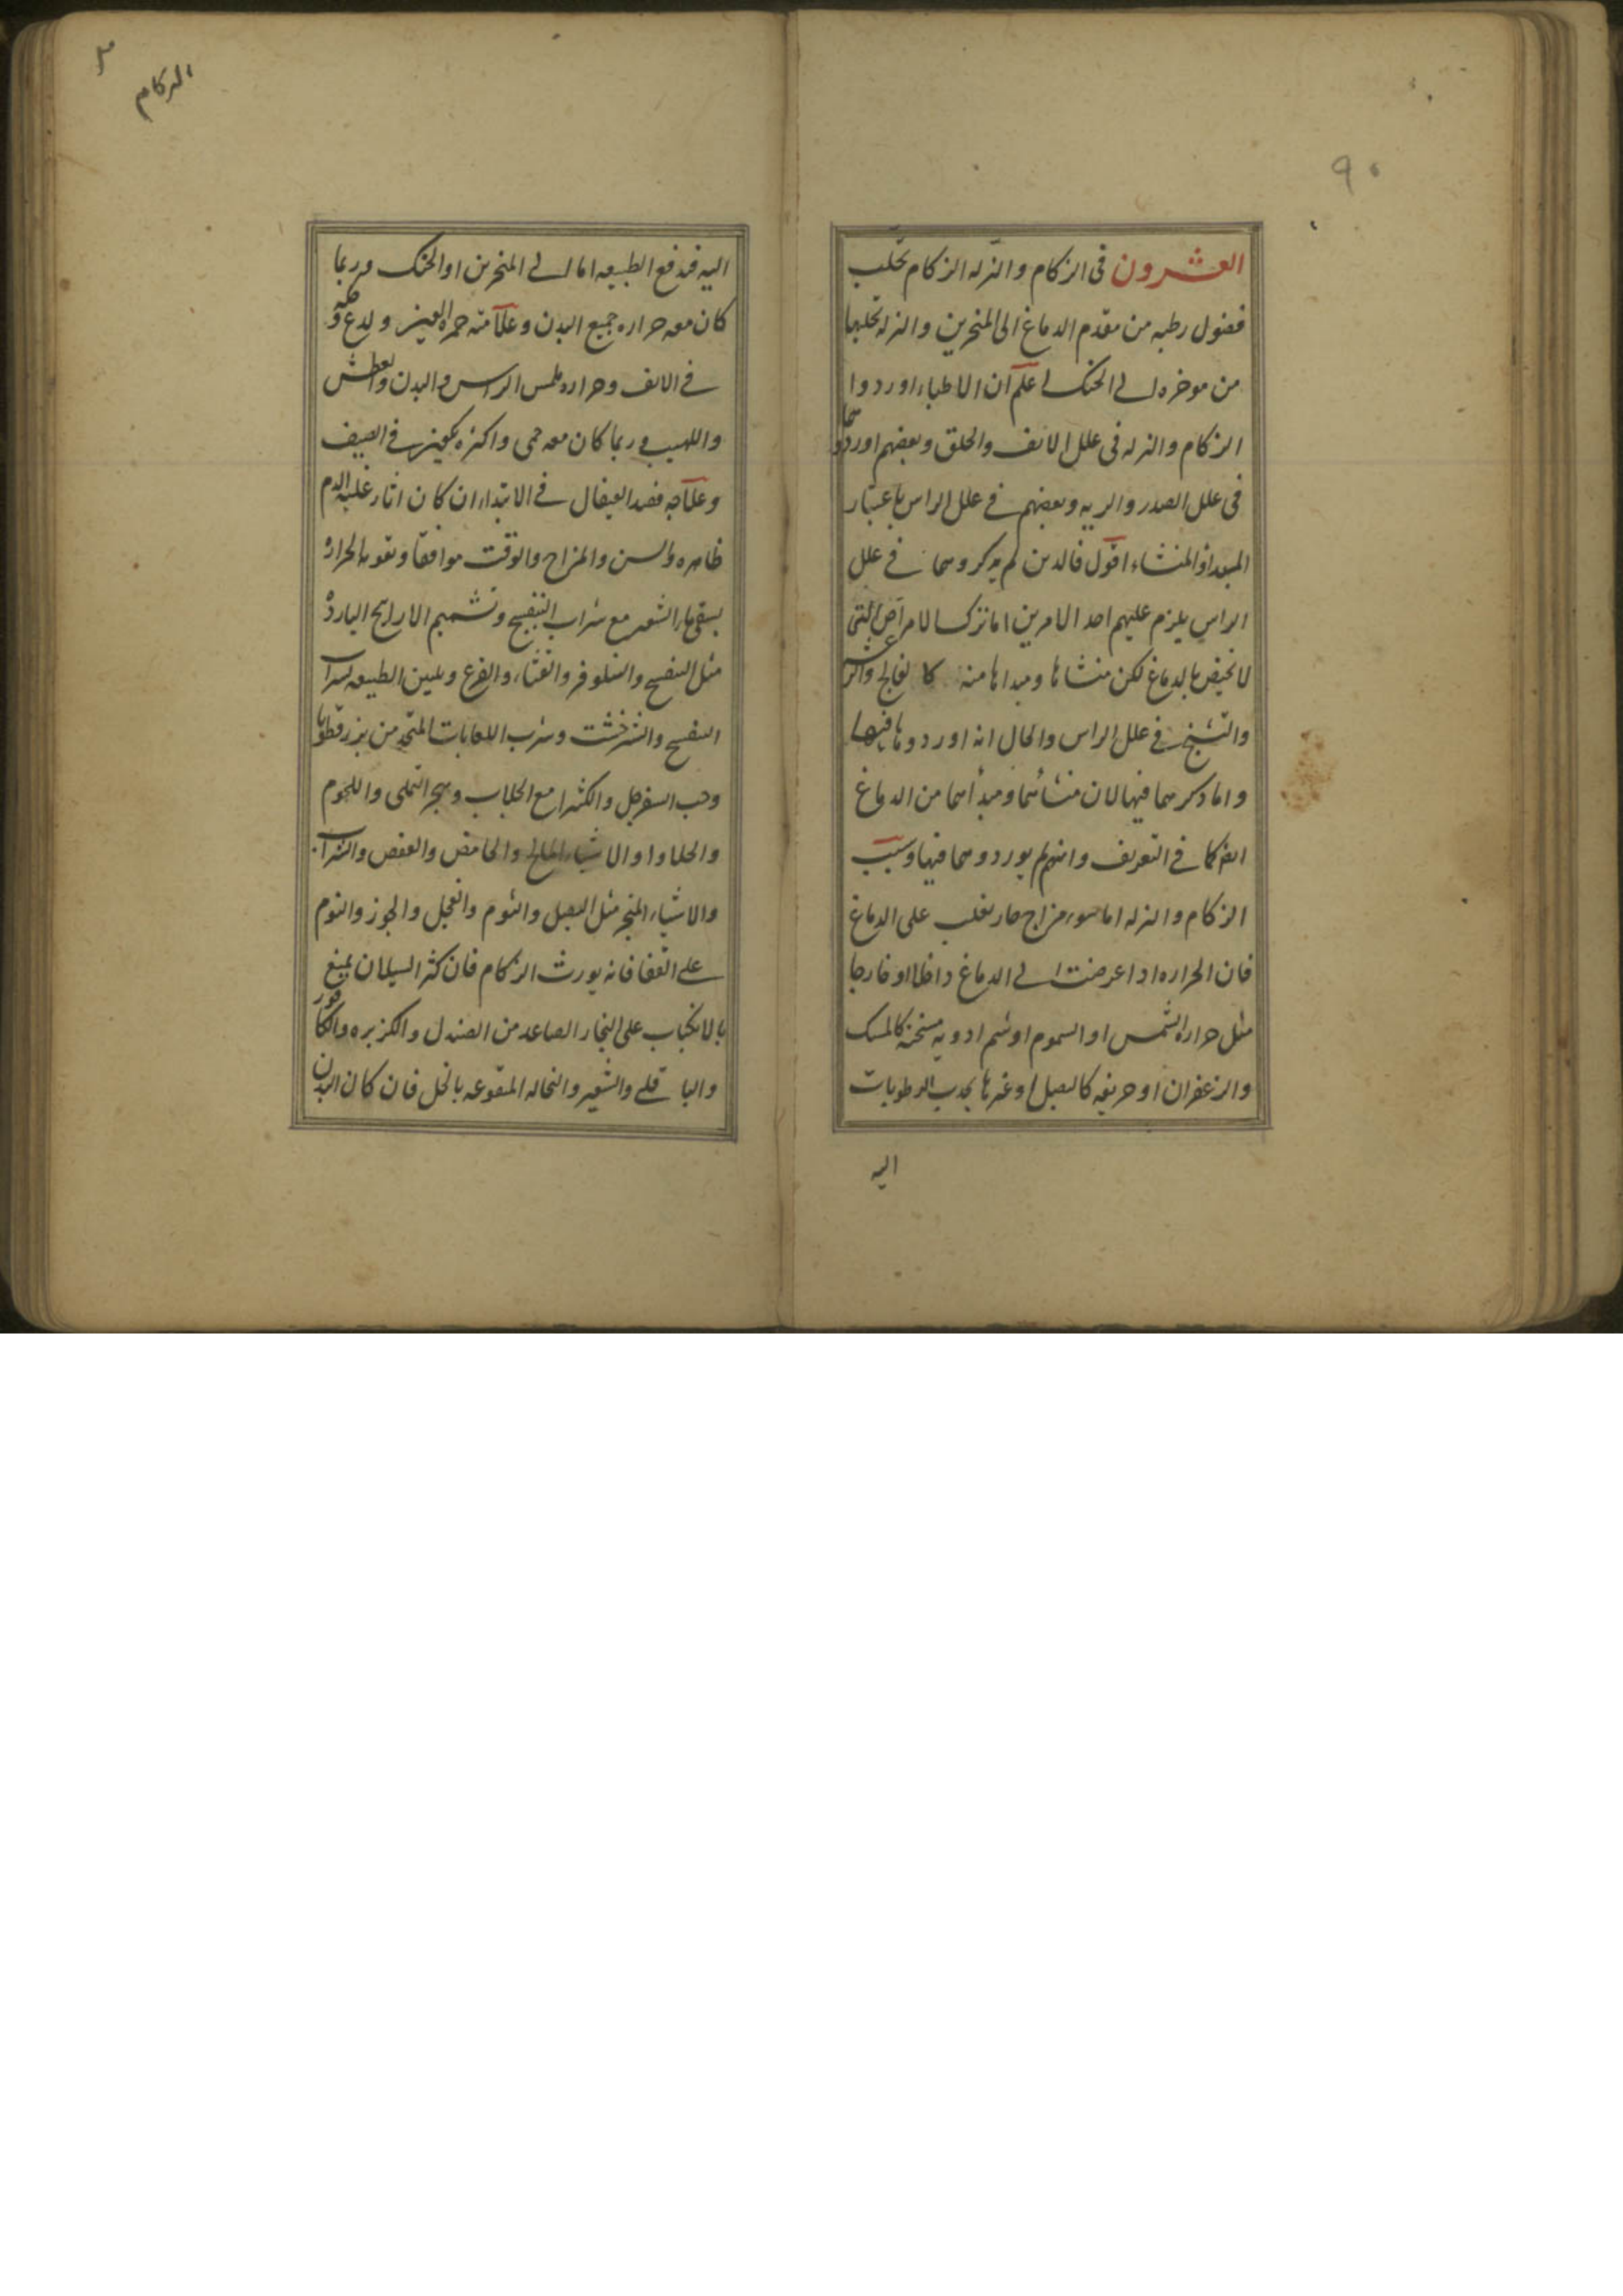 ٩٠
العشرون فى الزكام والنزله الزكام تحلب
فضول رطبه من مقدم الدماغ الى المنخرين والنزله تحلبها
من موخره الى الحنك اعلم ان الاطباء اوردوا
الزكام والنزله فى علل الانف والحلق وبعضهم اوردوهما
فى علل الصدر والريه وبعضهم فى علل الراس باعتبار
المبدا والمنشاء اقول فالدين لم يدكروهما فى علل
الراس يلزم عليهم احد الامرين اما ترك الامراض التى
لا تختص بالدماغ لكن منشاها ومبداها منه كالفالج والرعشه
والتشنج فى علل الراس والحال انه اوردوها فيها
واما دكرهما فيها لان منشائهما ومبدأهما من الدماغ
ايضا كما فى التعريف وانهم لم يوردوهما فيها وسبب
الزكام والنزله اما سوء مزاج حار يغلب على الدماغ
فان الحراره ادا عرضت الى الدماغ داخلا او خارجا
مثل حراره الشمس او السموم او شم ادويه مسخنه كالمسك
والزعفران او حريفه كالبصل وغيرها يجدب الرطوبات
اليه
الزكام
اليه فتدفع الطبيعه اما الى المنخرين او الحنك وربما
كان معه حراره جميع البدن وعلامته حمره العين ولدع وحكه
فى الانف وحراره ملمس الراس والبدن والعطش
واللهيب وربما كان معه حمى واكثره يكون فى الصيف
وعلاجه فصد القيفال فى الابتداء ان كان اثار غلبه الدم
ظاهره والسن والمزاج والوقت موافقا وتقويه الحراره
بسقى ماء الشعير مع شراب البنفسج وتشميم الاراييح البارده
مثل البنفسج والنيلوفر والقثاء والقرع وتليين الطبيعه بشراب
البنفسج والشيرخشت وشرب اللعابات المتخد من بزرقطونا
وحب السفرجل والكثيرا مع الجلاب وهجر التملى واللحوم
والحلاوا والاشياء المالح والحامض والعفص والشراب
والاشياء المبخر مثل البصل والثوم والفجل والجوز والنوم
على القفا فانه يورث الزكام فان كثر السيلان يمنع
بالانكباب على البخار الصاعد من الصندل والكزبره والكافور
والباقلى والشعير والنخاله المنقوعه بالخل فان كان البدن